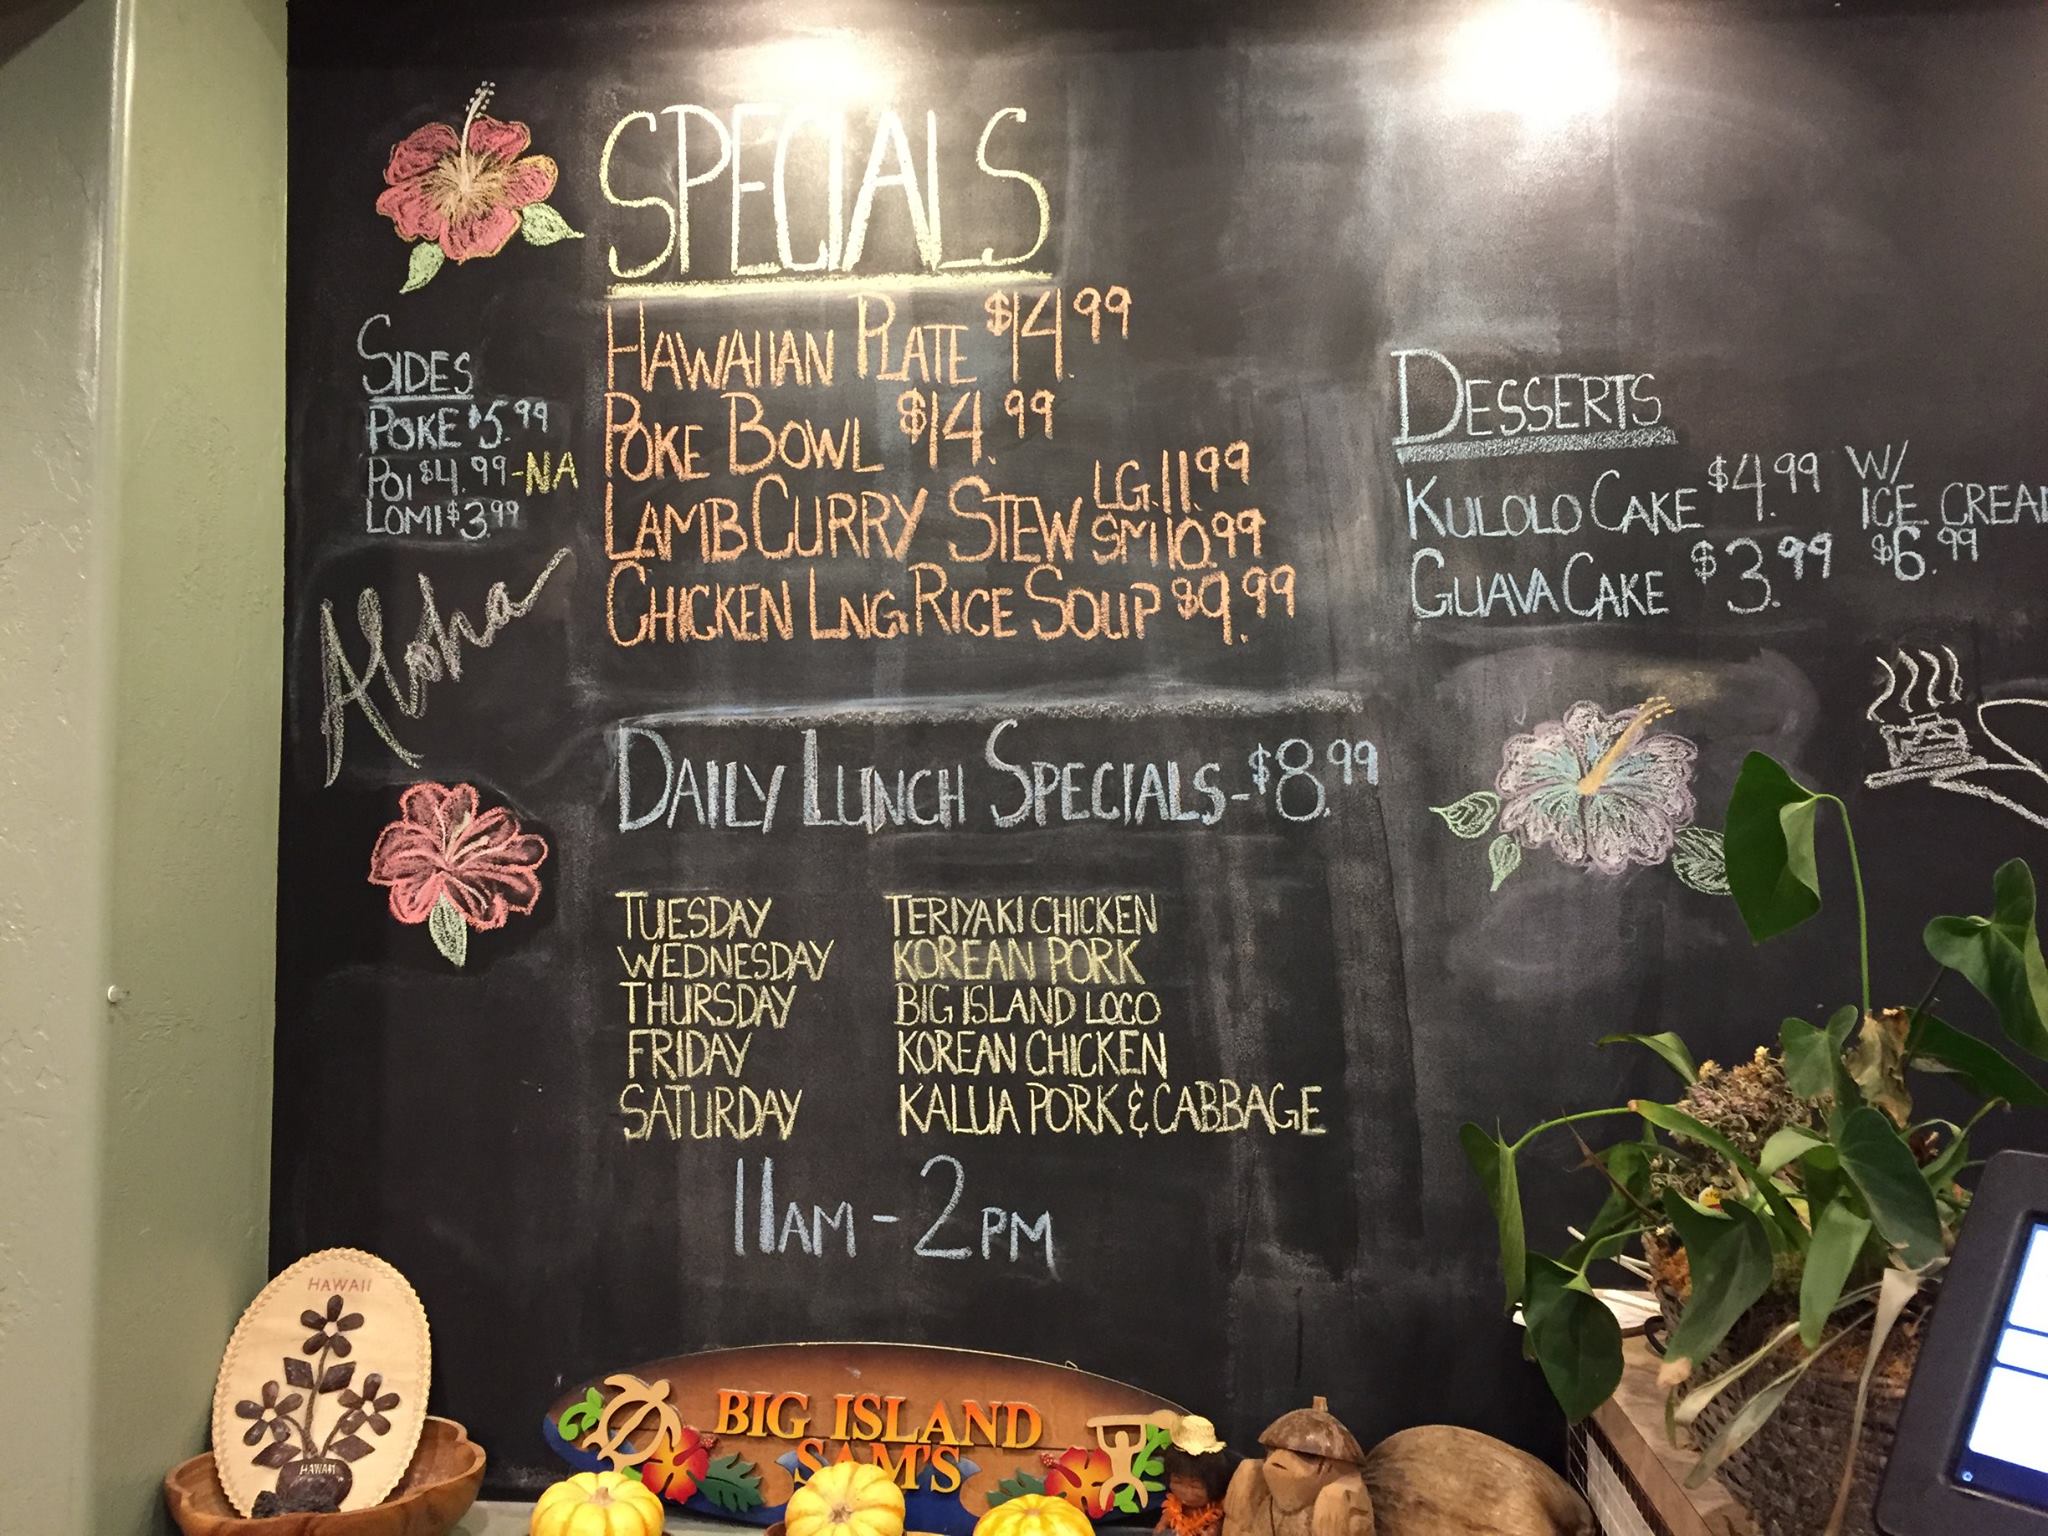 SPECIALS
HAWAIIAN PLATE $14.99
POKE BOWL $14.99
LAMB CURRY STEW LG. 11.99
SM 10.99
CHICKEN LNG RICE SOUP $9.99
SIDES
POKE $5.99
POI $4.99-NA
LOMI $3.99
Aloha
DESSERTS
KULOLO CAKE $4.99 W/
ICE CREAM
GUAVA CAKE $3.99 $6.99
DAILY LUNCH SPECIALS-$8.99
TUESDAY TERIYAKI CHICKEN
WEDNESDAY KOREAN PORK
THURSDAY BIG ISLAND LOCO
FRIDAY KOREAN CHICKEN
SATURDAY KALUA PORK & CABBAGE
11AM - 2PM
HAWAII
HAWAII
BIG ISLAND
SAM'S